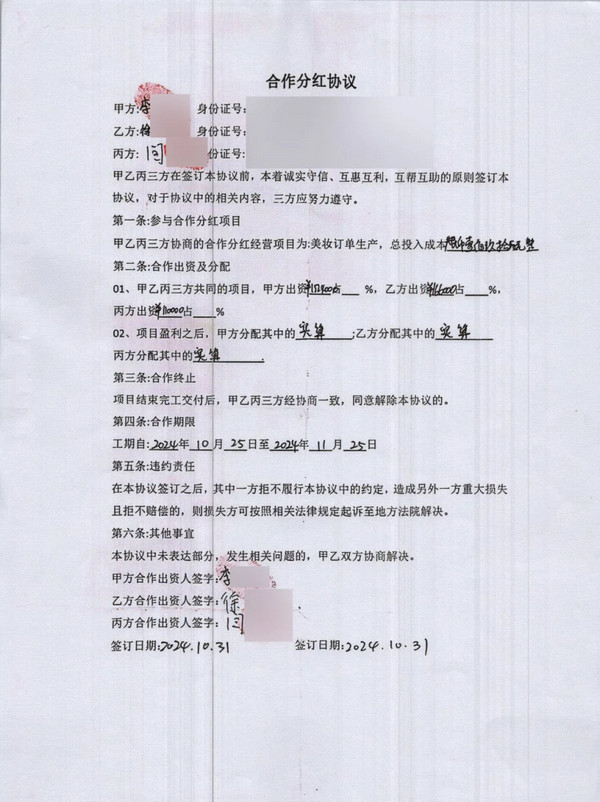 合作分红协议
甲方:李 身份证号:
乙方:徐 身份证号:
丙方: 闫 身份证号:
甲乙丙三方在签订本协议前，本着诚实守信、互惠互利，互帮互助的原则签订本
协议，对于协议中的相关内容，三方应努力遵守。
第一条:参与合作分红项目
甲乙丙三方协商的合作分红经营项目为:美妆订单生产，总投入成本
第二条:合作出资及分配
01、甲乙丙三方共同的项目，甲方出资 占___ %，乙方出资 占____%，
丙方出资 占____%
02、项目盈利之后，甲方分配其中的 实算 ;乙方分配其中的 实算
丙方分配其中的 实算 .
第三条:合作终止
项目结束完工交付后，甲乙丙三方经协商一致，同意解除本协议的。
第四条:合作期限
工期自:2024年10月25日至2024年11月25日
第五条:违约责任
在本协议签订之后，其中一方拒不履行本协议中的约定，造成另外一方重大损失
且拒不赔偿的，则损失方可按照相关法律规定起诉至地方法院解决。
第六条:其他事宜
本协议中未表达部分，发生相关问题的，甲乙双方协商解决。
甲方合作出资人签字:李
乙方合作出资人签字:徐
丙方合作出资人签字:闫
签订日期:2024.10.31 签订日期:2024.10.31